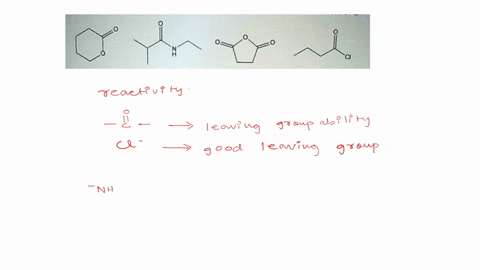 O
O
O
N
H
O
O
O
O
Cl
reactivity.
O
— C — → leaving group ability
Cl⁻ → good leaving group
⁻NH